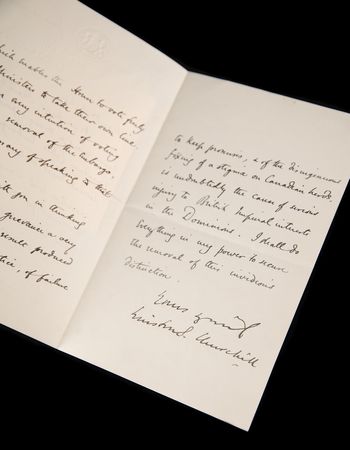 which enables the House to vote freely
Ministers to take their own line,
any intention of voting
removal of the embargo,
any of speaking in that
you in thinking
grievance a very
result produced
, of failure
to keep promises, & of the disingenuous
fixing of a stigma on Canadian herds,
is undoubtedly the cause of serious
injury to British Imperial interests
in the Dominions. I shall do
everything in my power to secure
the removal of this invidious
distinction.
Yours
Winston S. Churchill